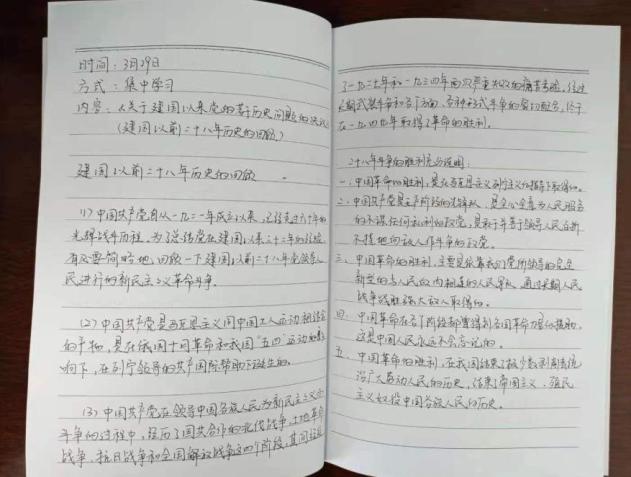 时间：3月29日
方式：集中学习
内容：《关于建国以来党的若干历史问题的决议》
(建国以前二十八年历史的回顾)
建国以前二十八年历史的回顾
(1) 中国共产党自从一九二一年成立以来，已经走过六十年的
光辉战斗历程，为了总结党在建国以来三十二年的经验
有必要简略地回顾一下建国以前二十八年党领导人
民进行的新民主主义革命斗争。
(2) 中国共产党是马克思主义同中国工人运动相结合
的产物，是在俄国十月革命和我国"五四"运动的影
响下，在列宁领导的共产国际帮助下诞生的。
(3) 中国共产党在领导中国各族人民为新民主主义而
斗争的过程中，经历了国共合作的北伐战争、土地革命
战争、抗日战争和全国解放战争这四个阶段，其间经过
了一九二七年和一九三四年两次严重失败的痛苦考验，经过
长期武装斗争和各个方面、各种形式斗争的密切配合，终于
在一九四九年取得了革命的胜利。
二十八年斗争的胜利充分说明：
一、中国革命的胜利，是在马克思主义列宁主义的指导下取得的。
二、中国共产党是无产阶级的先锋队，是全心全意为人民服务
的不谋任何私利的政党，是敢于善于领导人民百折
不挠地向敌人作斗争的政党。
三、中国革命的胜利，主要是依靠我们党所领导的完全
新型的与人民血肉相连的人民军队，通过长期人民
战争战胜强大敌人取得的。
四、中国革命在各个阶段都曾得到各国革命力量的援助，
这是中国人民永远不会忘记的。
五、中国革命的胜利，在我国结束了极少数剥削者统
治广大劳动人民的历史，结束了帝国主义、殖民
主义奴役中国各族人民的历史。